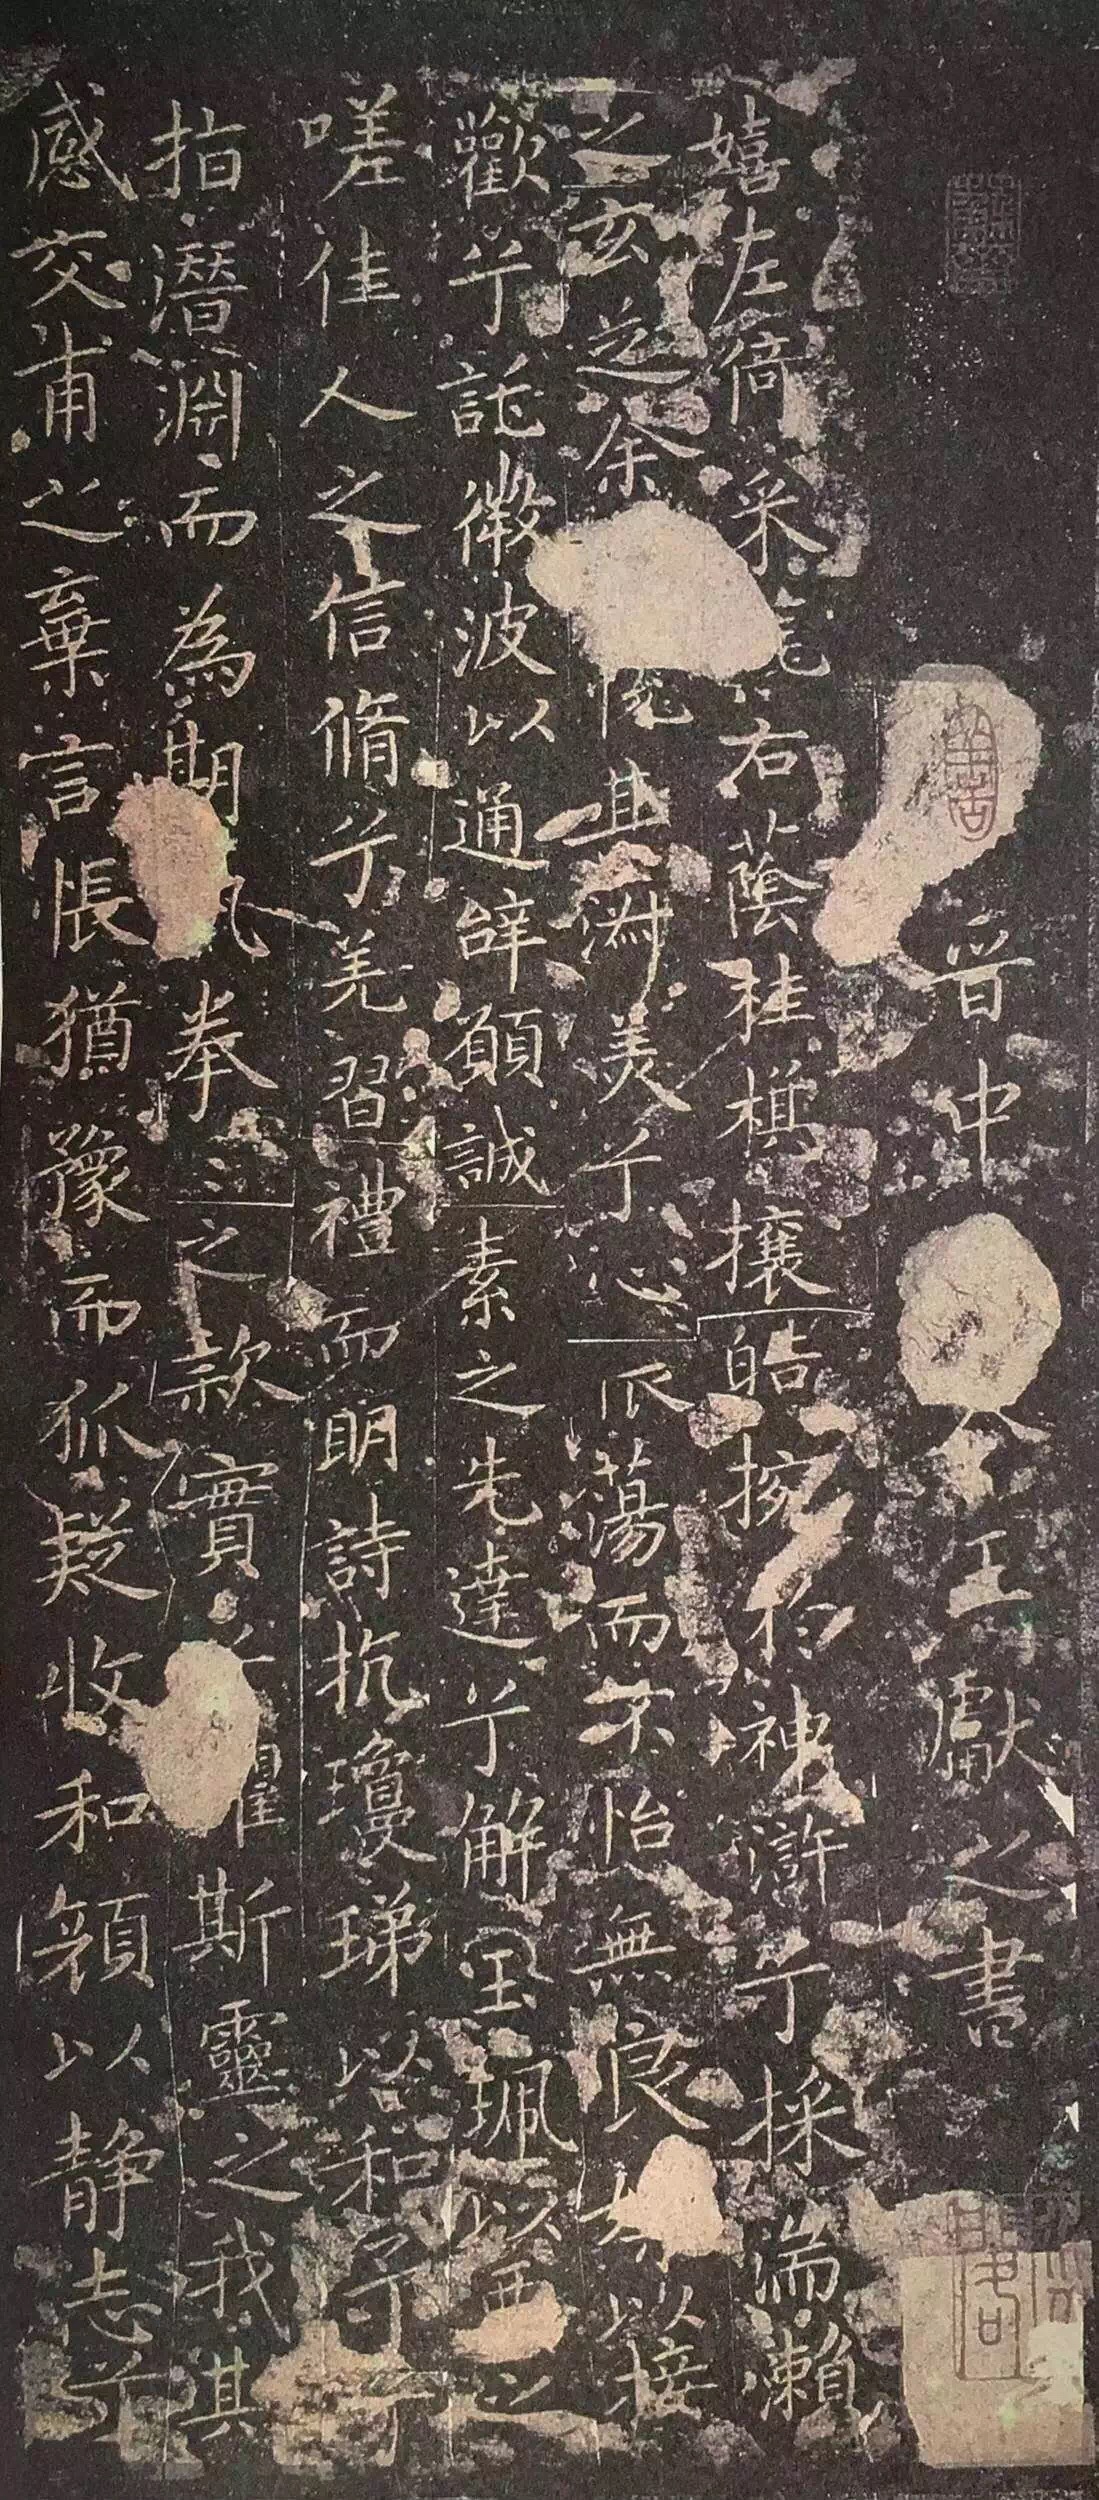 晋中令王獻之書
嬉左倚采旄右蔭桂旗攘皓捥於神滸兮採湍瀨
之玄芝余悅其淑美兮心振蕩而不怡無良媒以接
歡兮託微波以通辭願誠素之先達兮解玉珮以要之
嗟佳人之信脩兮羌習禮而明詩抗瓊珶以和予兮
指潛淵而為期執拳〻之款實兮懼斯靈之我欺
感交甫之棄言悵猶豫而狐疑收和顏以靜志兮